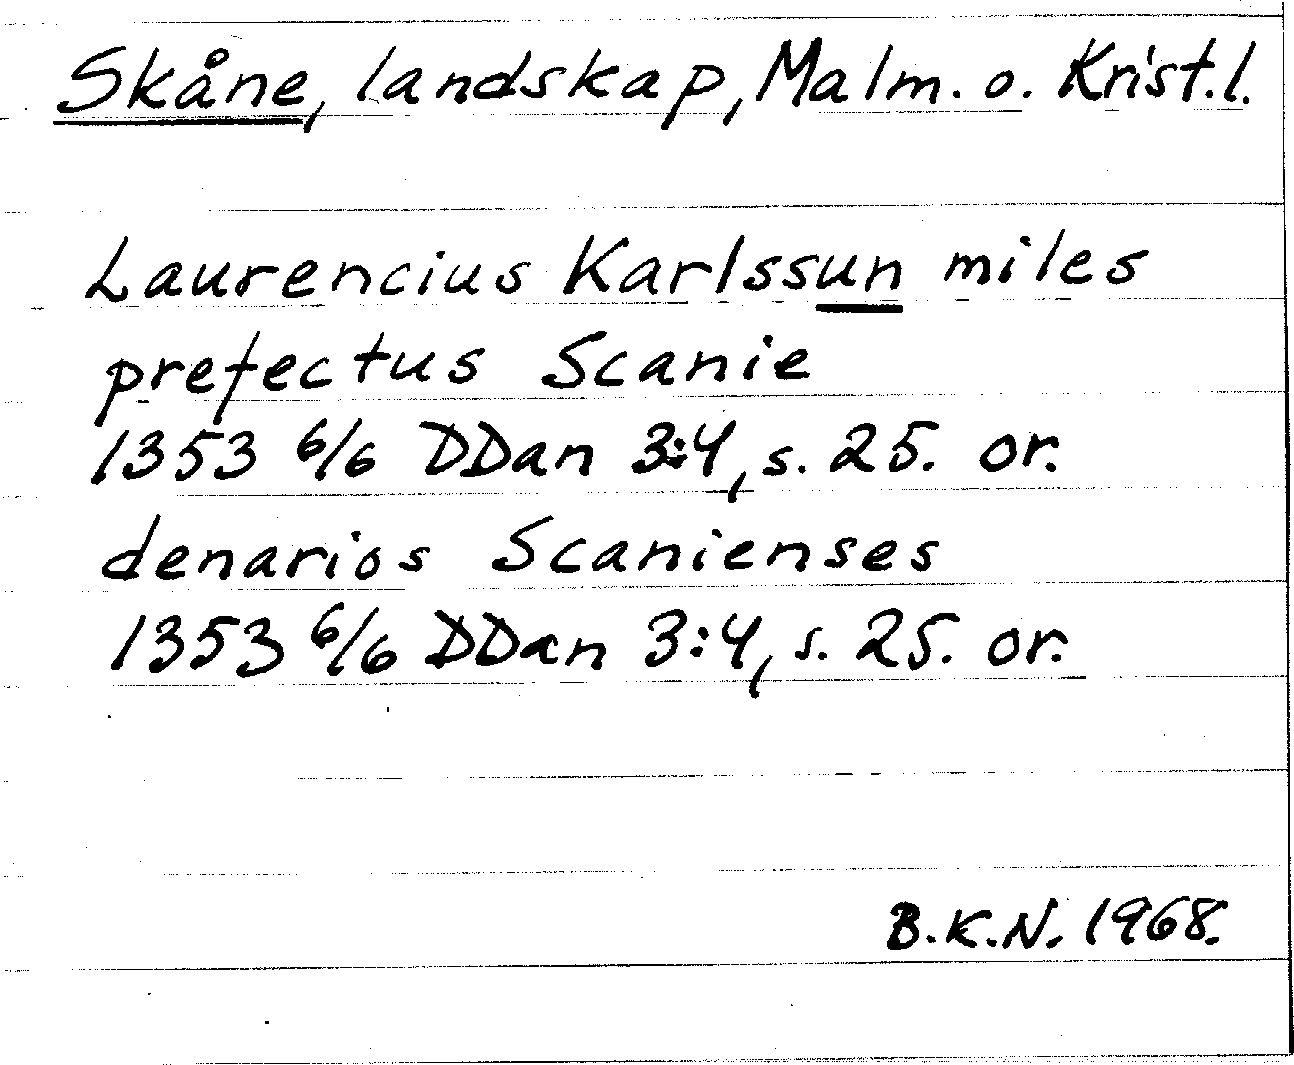 Skåne, landskap, Malm. o. Krist.l.
Laurencius Karlssun miles
prefectus Scanie
1353 6/6 DDan 3:4, s. 25. or.
denarios Scanienses
1353 6/6 DDan 3:4, s. 25. or.
B.K.N. 1968.